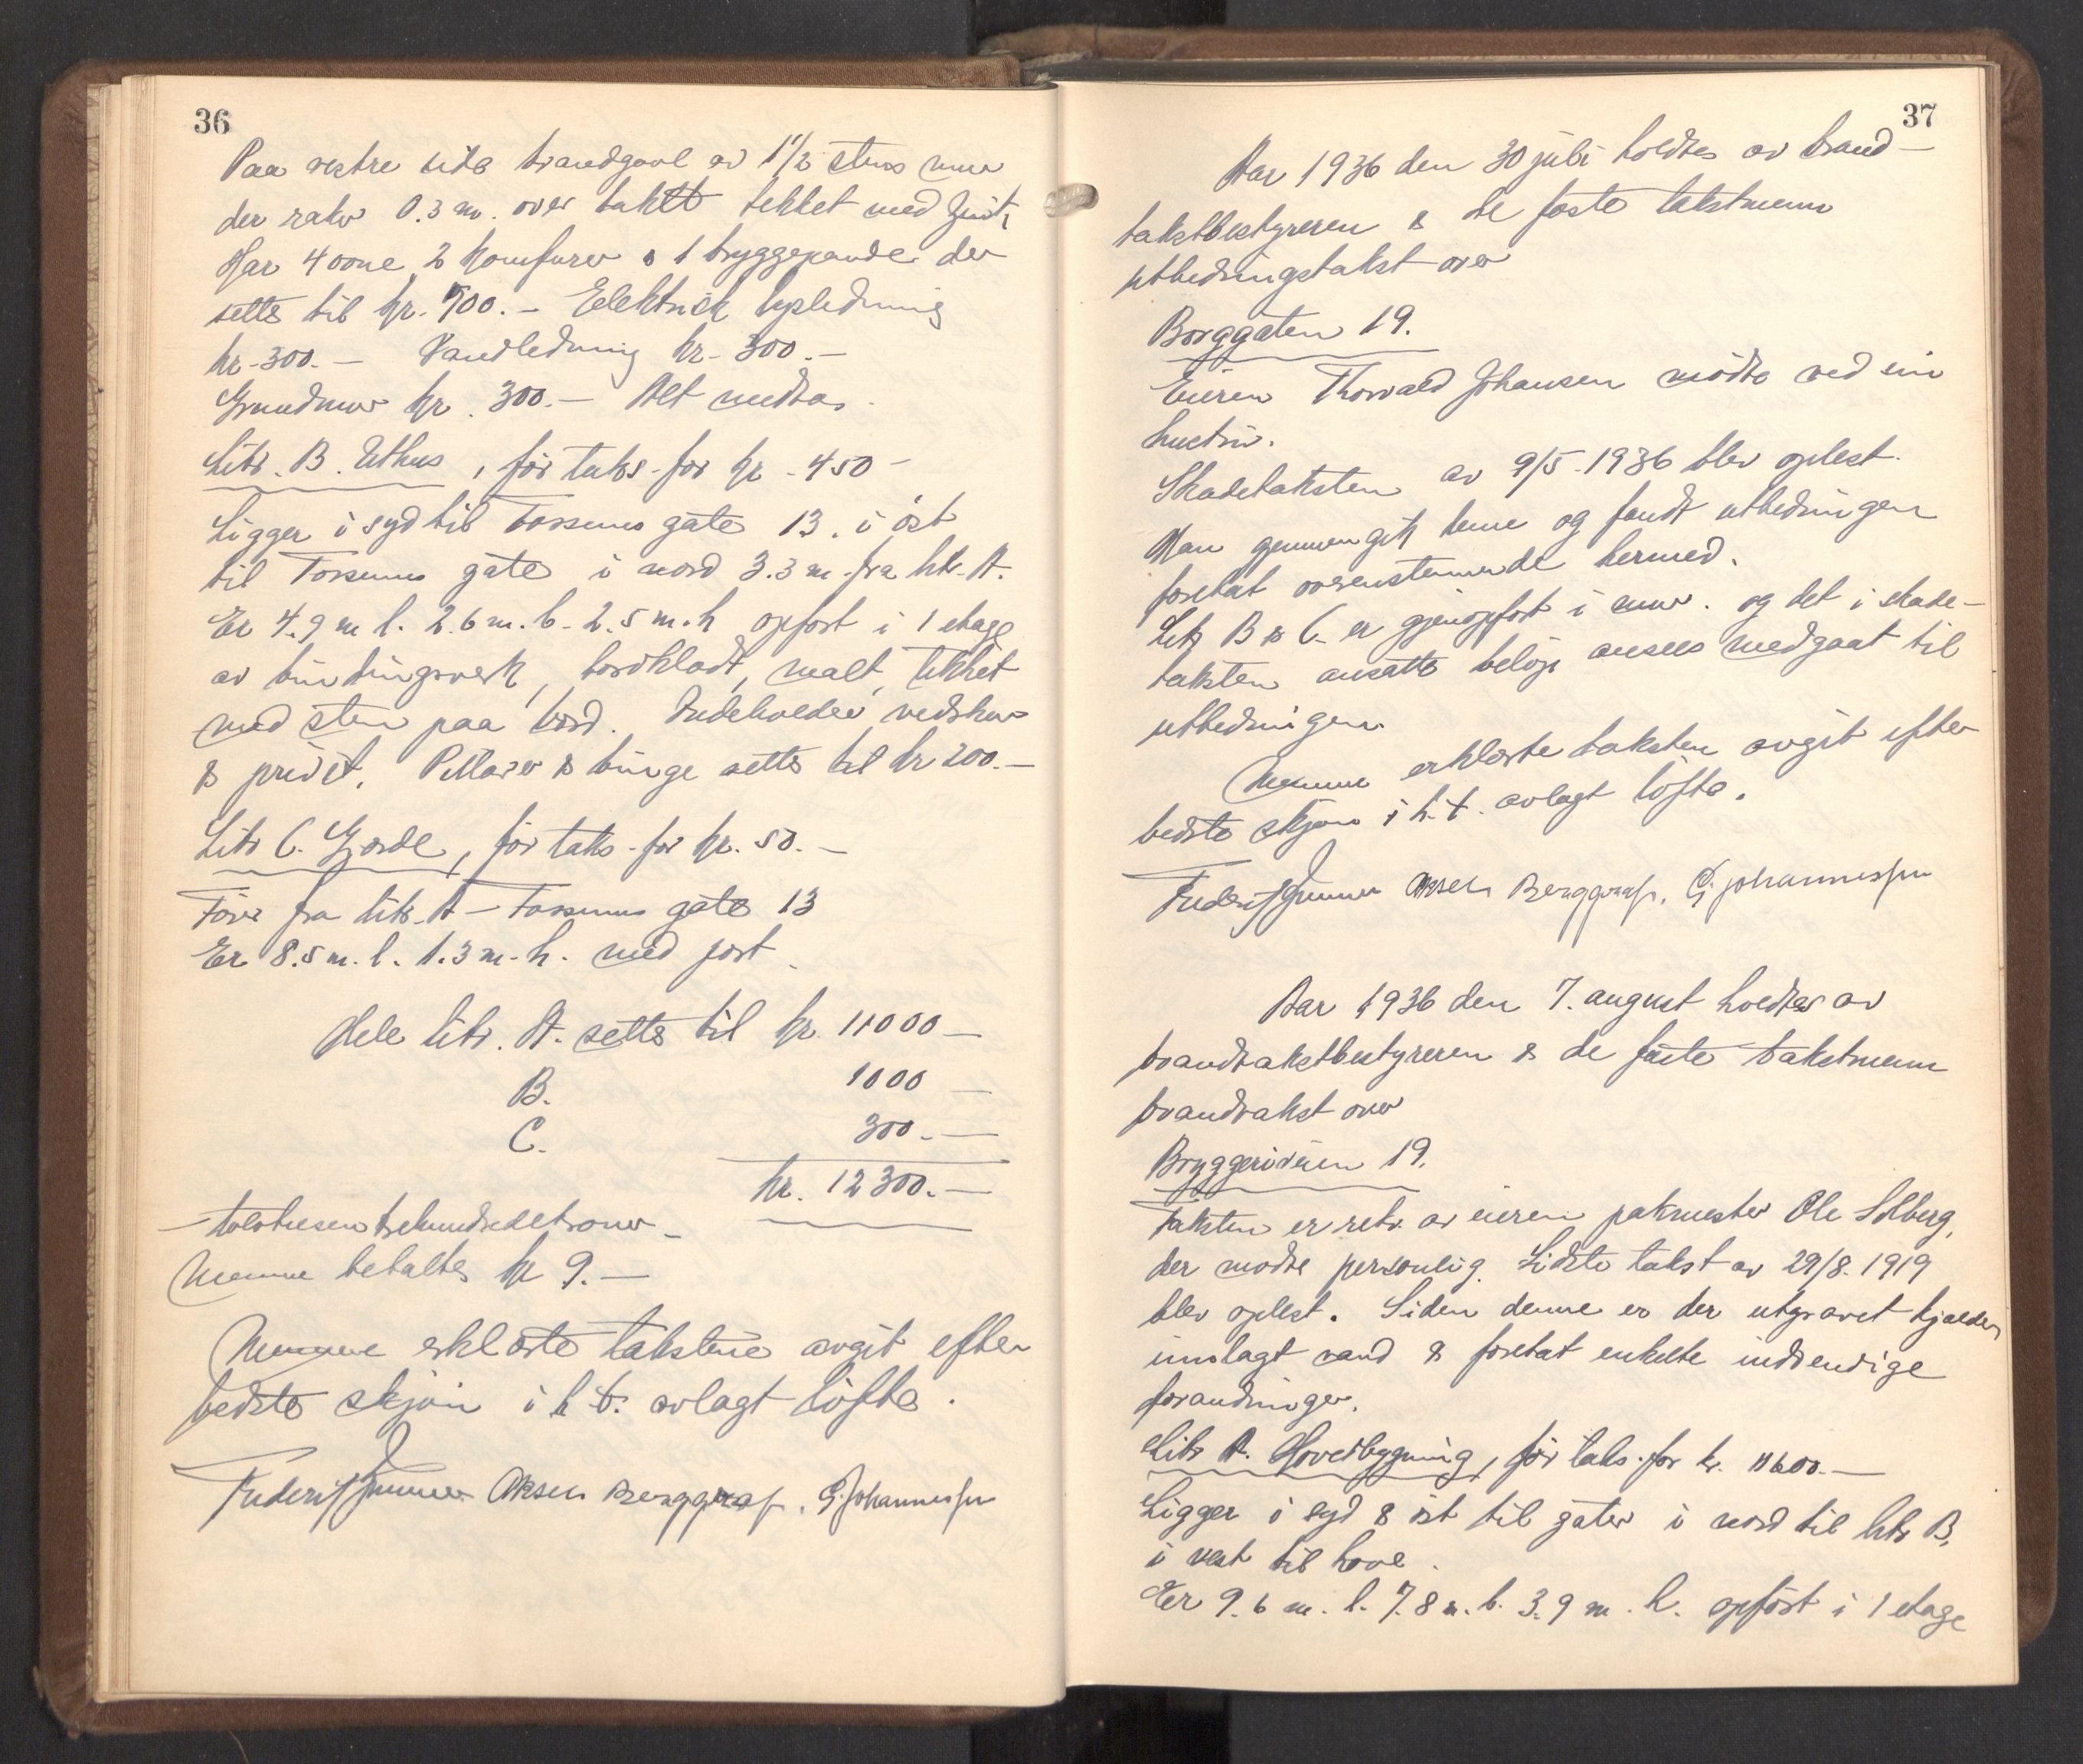 36
Paa vestre side brandgavl av 1 1/2 stens mur
der raker 0.3 m. over taket tekket med zink,
Har 4 ovne 2 komfurer & 1 bryggepande der
settes til kr. 700.- Elektrisk lysledning
kr. 300.- Vandledning kr. 300.-
Grundmur kr. 300.- Alt medtas.
Litr. B. Uthus, før taks. for kr. 450-
Ligger i syd til Fossums gate 13. i øst
til Fossums gate i nord 3.3 m. fra litr. A.
Er 4.9 m l. 2.6 m. b. 2.5 m. h opført i 1 etage
av bindingsverk, bordkladt, malt, tekket
med sten paa bord. Indeholder vedskur
& privet. Pillarer & binge settes til kr 200.-
Litr C. Gjærde, før taks. for kr. 50.-
Fører fra litr. A - Fossums gate 13
Er 8.5 m. l. 1.3 m. h. med port.
Hele litr. A. settes til kr. 11000-
B. 1000-
C. 300.-
kr. 12300.-
-tolvtusentrehundredekroner-
Mennene betaltes kr 9.-
Mennene erklærte taksten avgit efter
bedste skjøn i h. t. avlagt løfte.
Aksel Berggraf. G. Johannessen
37
Aar 1936 den 30 juli holdtes av brand-
takstbestyreren & de faste takstmenn
utbedringstakst over
Borggaten 19.
Eieren Thorvald Johansen mødte ved sin
hustru.
Skadetaksten av 9/5-1936 blev oplest.
Man gjennemgik denne og fandt utbedringen
foretat overenstemmende hermed.
Litr B & C. er gjenopført i mur. og det i skade-
taksten ansatte beløp ansees medgaat til
utbedringen.
Mennene erklærte taksten avgit efter
bedste skjøn i h. t. avlagt løfte.
Aksel Berggraf. G. Johannessen
Aar 1936 den 7. august holdtes av
brandtakstbestyreren & de faste takstmenn
brandtakst over
Bryggeriveien 19.
Taksten er rekv. av eieren pakmester Ole Solberg,
der mødte personlig. Sidste takst av 29/8. 1919
blev oplest. Siden denne er der utgravet kjælder
innlagt vand & foretat enkelte indvendige
forandringer.
Litr A. Hovedbygning, før taks. for kr. 11600.-
Ligger i syd & øst til gater i nord til litr B,
i vest til have.
Er 9.6 m. l. 7.8 m. b. 3.9 m. h. opført i 1 etage